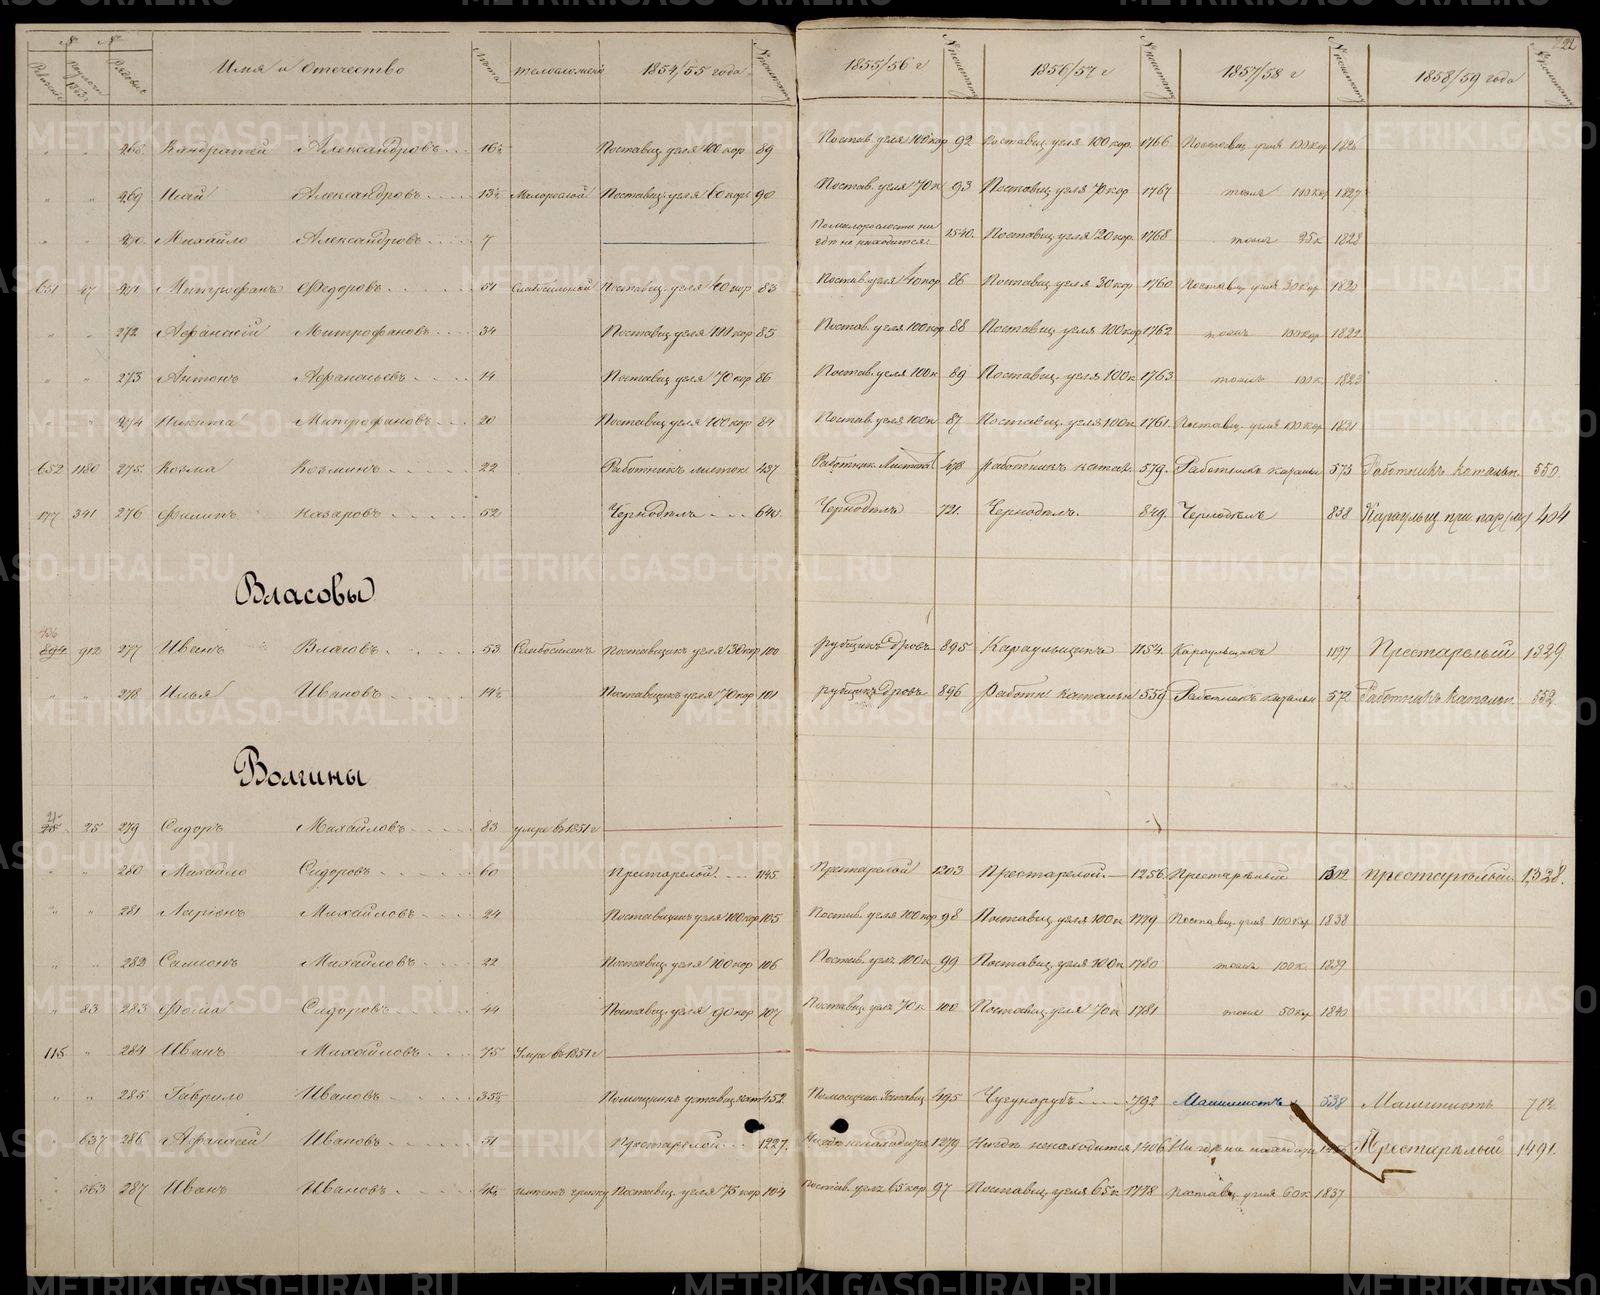 22
№ №
Имя и Отечество Лета телосложенiе 1854/55 года 1855/56 г 1856/57 г 1857/58 г 1858/59 года
268. Кондратей Александровъ 16½ Поставщ. угля 100 кор 89 Постав. угля 100 кор 92 Поставщ. угля 100 кор. 1766 Поставщ. угля 100 кор 1826
269 Исай Александровъ 13½ Малорослой Поставщ. угля 60 кор 90 Постав. угля 70 к 93 Поставщ угля 70 кор 1767 тоже 100 кор 1827
270. Михайло Александровъ 7 По малорослости ни 1540. Поставщ угля 20 кор. 1768 тоже 35 к 1828
гдѣ не находится.
651 47 271 Митрофанъ Федоровъ 51 Слабосильной Поставщ. угля 40 кор 83 Постав. угля 40 кор 86 Поставщ угля 30 кор 1760 Поставщ угля 30 кор 1820
272 Афанасiй Митрофановъ 34 Поставщ угля 100 кор 85 Постав. угля 100 кор 88 Поставщ. угля 100 кор 1762 тоже 100 кор 1822
273 Антонъ Афанасьевъ 14 Поставщ угля 70 кор 86 Постав. угля 100 к 89 Поставщ. угля 100 к 1763 тоже 100 к 1823
274 Никита Митрофановъ 20 Поставщ угля 100 кор 84 Постав угля 100 к 87 Поставщ. угля 100 к 1761. Поставщ. угля 100 кор 1821
652 1180 275. Козма Козминъ 22 Работникъ 437 Работник. 478 Работникъ катал. 579. Работникъ 573 Работникъ катальн. 550.
177 341 276 Филипъ Назаровъ 52 Чернодѣлъ 640. Чернодѣлъ 721. Чернодѣлъ. 849. Чернодѣлъ 838 Караульщ при 404
Власовы
436
894 912 277 Иванъ Власовъ 53 Слабосиленъ Поставщикъ угля 30 кор 100 рубщикъ дровъ 895 Караульщикъ 1154. Караульщикъ 1197 Престарелый 1329
278 Илья Ивановъ 14½ Поставщикъ угля 70 кор 101 рубщикъ дровъ 896 Работн катальн 559 Работникъ катальн 572 Работникъ катальн. 552.
Волгины
25 279 Сидоръ Михайловъ 83 умре въ 1851 г
280 Михайло Сидоровъ 60 Престарелой. 1145 Престарелой 1203 Престарелой. 1256 Престарѣлый 1302 престарѣлый. 1,328.
281 Ларiонъ Михайловъ 24 Поставщикъ угля 100 кор 105 Постав. угля 100 кор 98 Поставщ угля 100 к 1779 Поставщ. угля 100 кор 1838
282 Самсонъ Михайловъ 22 Поставщ угля 100 кор 106 Постав. угля 100 к 99 Поставщ угля 100 к 1780 тоже 100 к 1839
83 283 Фома Сидоровъ 44 Поставщ. угля 90 кор 107 Поставщ. угля 70 к 100 Поставщ угля 70 к 1781 тоже 50 кор 1840
115. 284 Иванъ Михайловъ 75 Умре въ 1851 г
285 Гаврило Ивановъ 35½ Помощникъ уставщ. 452. Помощник. Уставщ 495 Чугунорубъ 792 Машинистъ 538 Машинистъ 782
637 286 Афанасей Ивановъ 51 Престарелой 1227. Нигдѣ ненаходится 1279 Нигдѣ ненаходится 1406 Нигдѣ не находи Престарѣлый 1491.
363 287 Иванъ Ивановъ имѣетъ грыжу Поставщ. угля 75 кор 104 Постав. угля 65 кор 97 Поставщ. угля 65 к 1778 Поставщ. угля 60 к 1837
METRIKI.GASO-URAL.RU